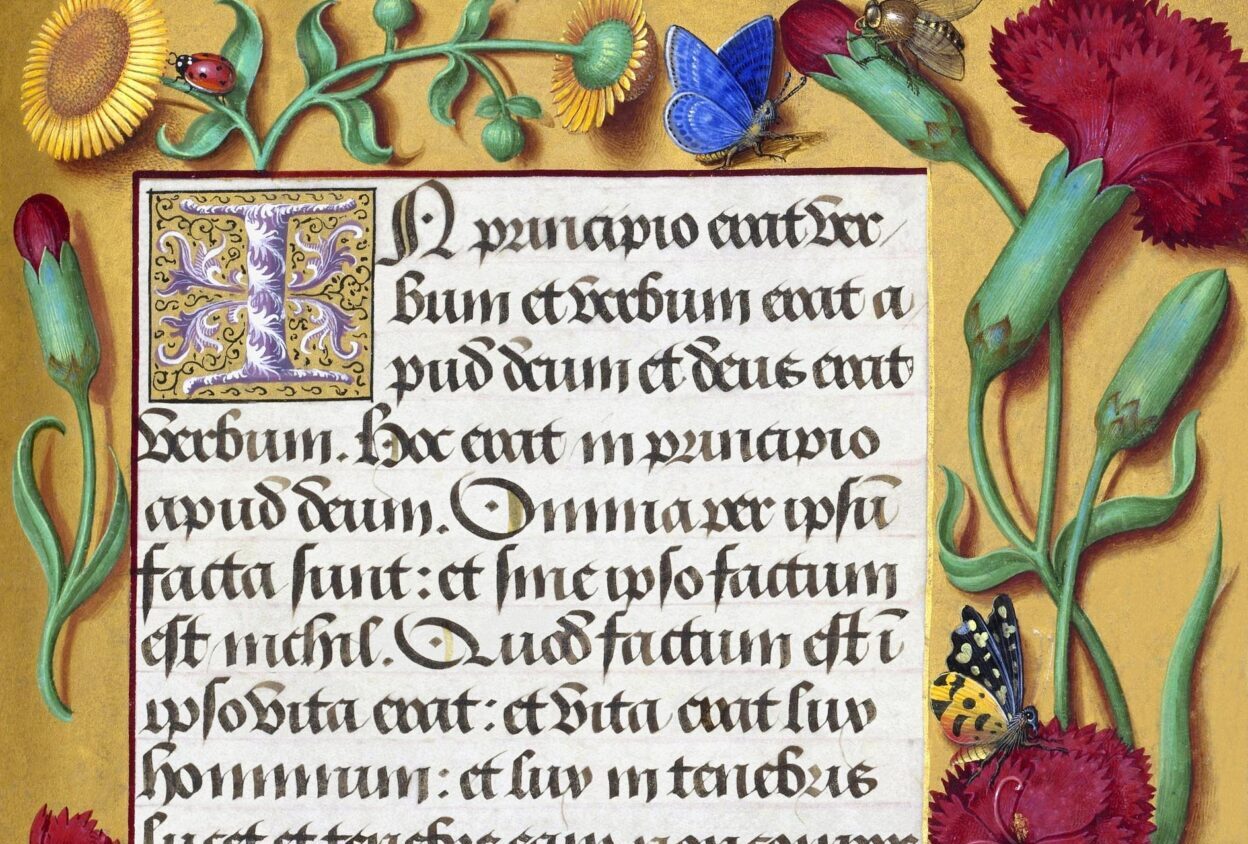 IN principio erat ver
bum et verbum erat a
pud deum et deus erat
verbum. Hoc erat in principio
apud deum. Omnia per ipsū
facta sunt: et sine ipso factum
est nichil. Quod factum est ī
ipso vita erat: et vita erat lux
hominum: et lux in tenebris
lucet et tenebre eam non compre